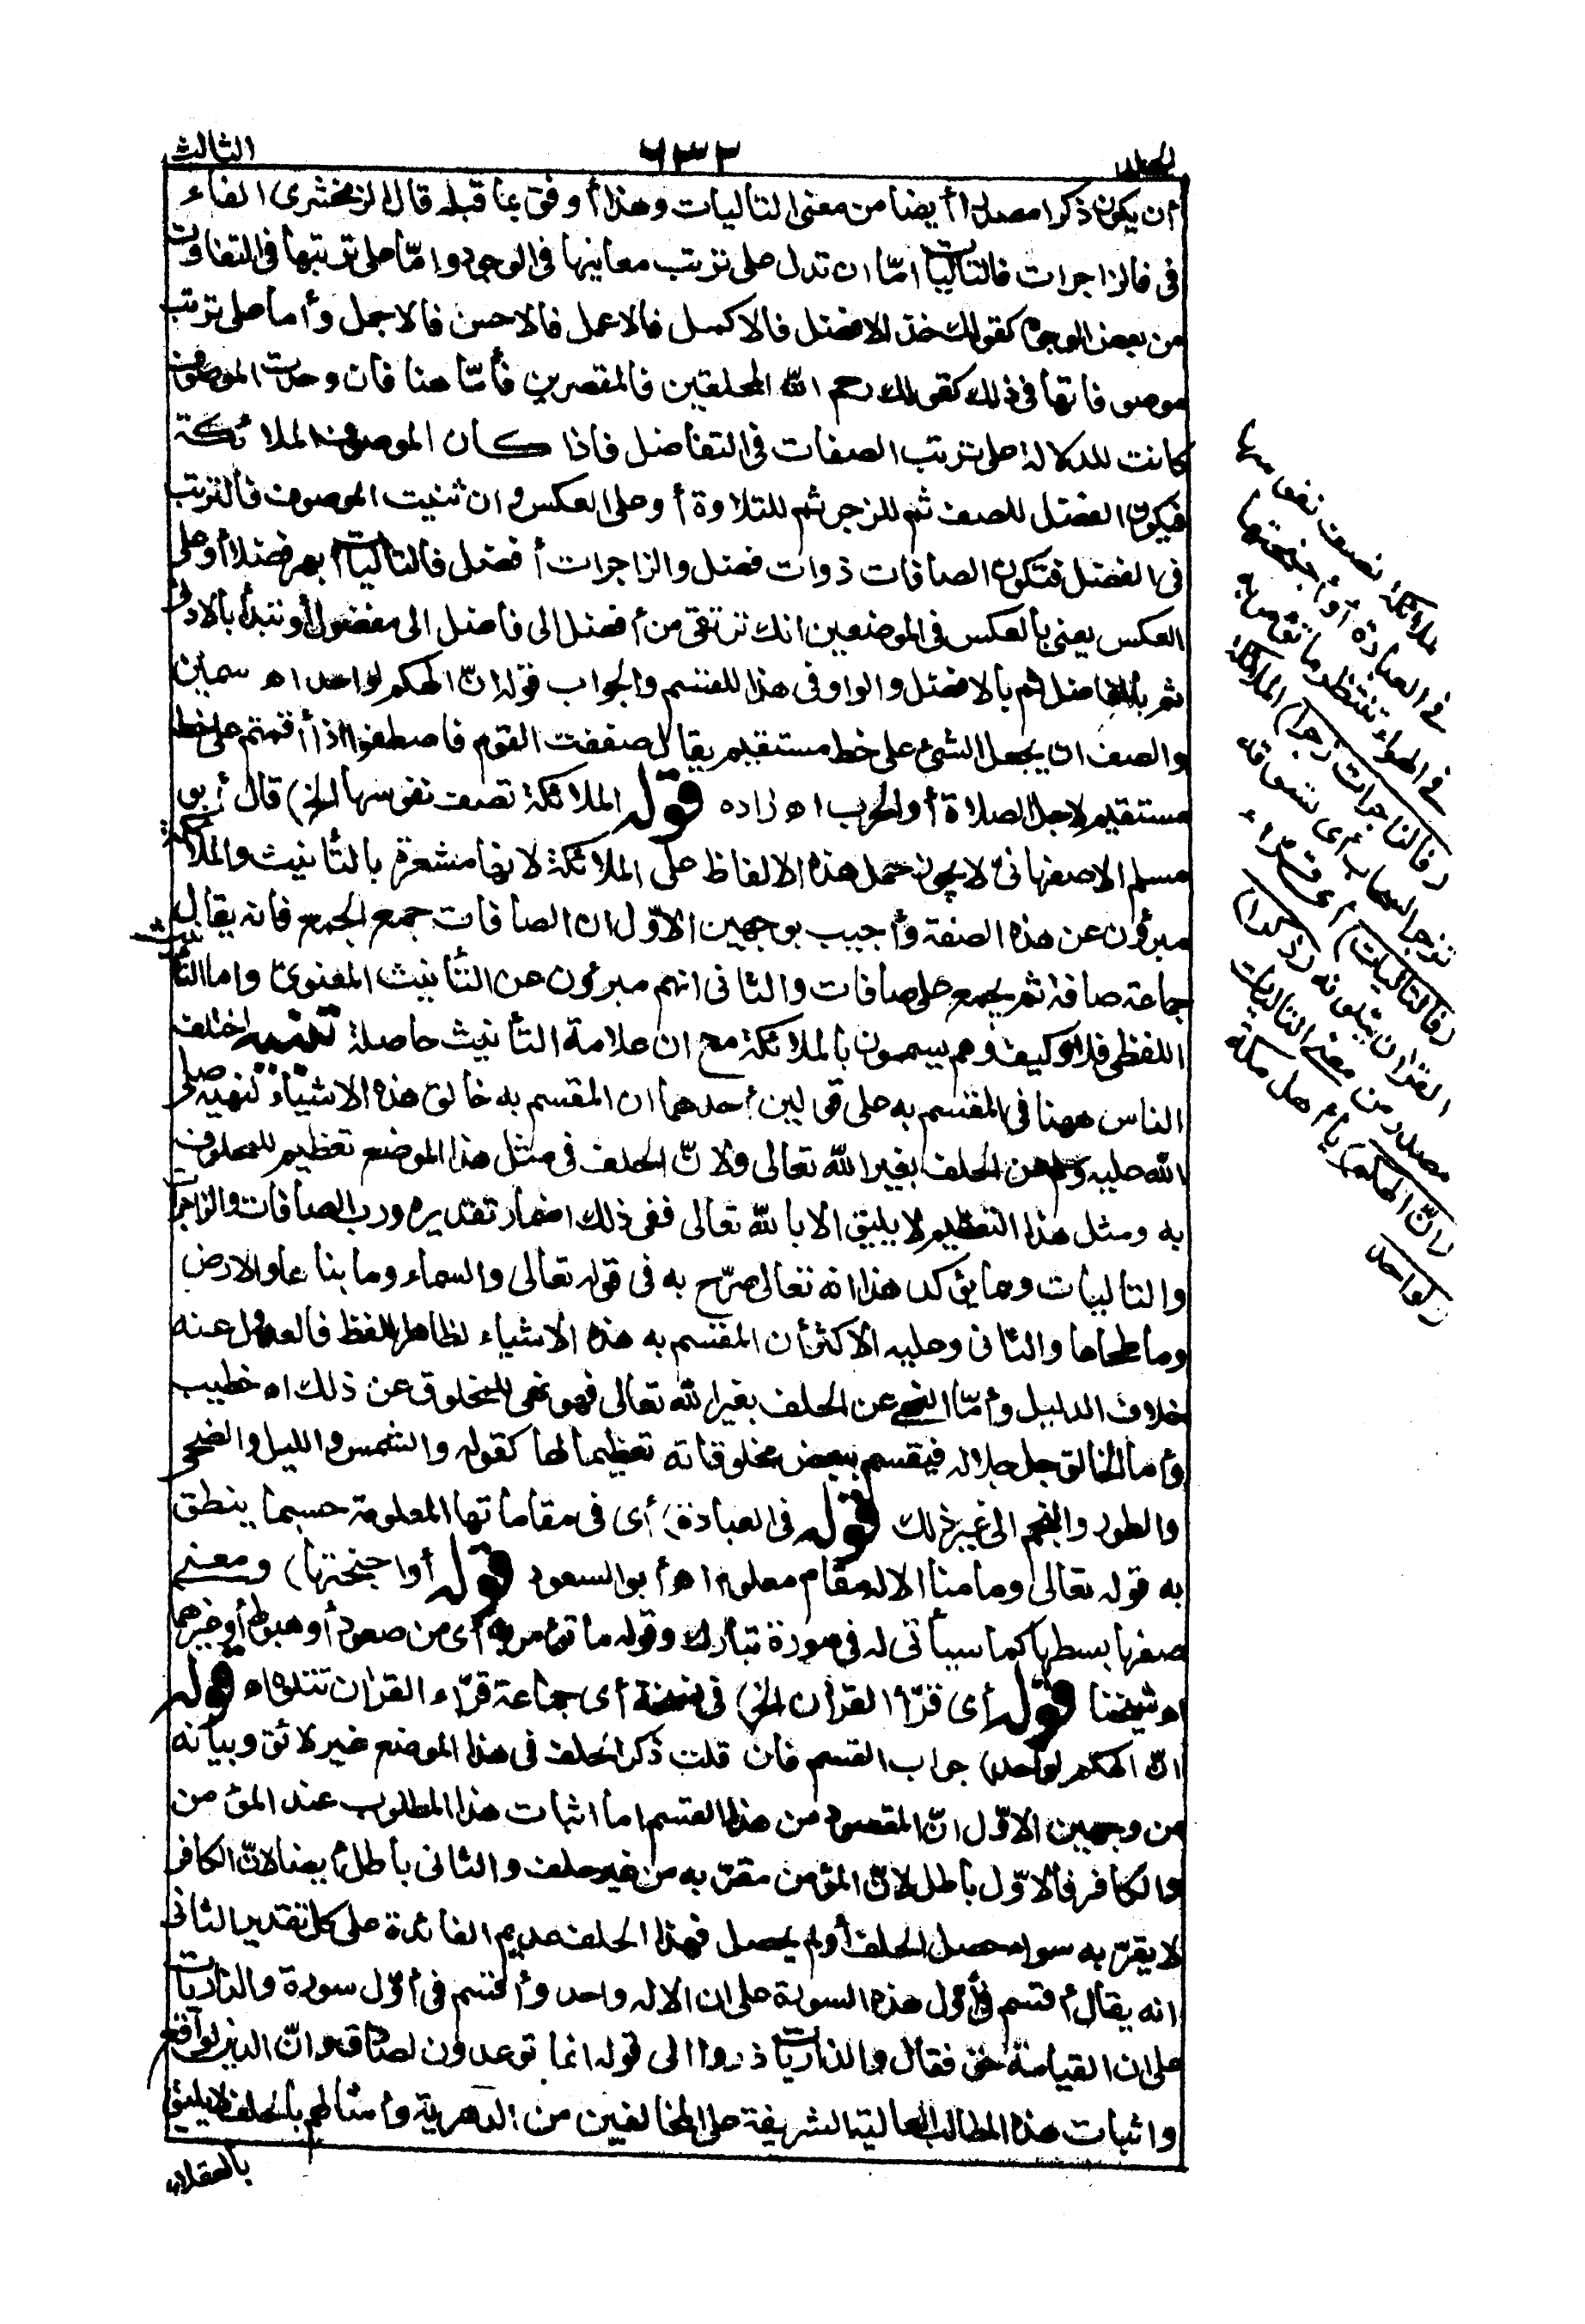 الجلد
٦٣٢
الثالث
أن يكون ذكرا مصدرا أيضا من معنى التاليات وهذا أوفق بما قبله قال الزمخشرى الفاء
فى فالزاجرات فالتاليات امّا ان تدل على ترتب معانيها فى الوجود وامّا على ترتبها فى التفاوت
من بعض الوجوه كقولك خذ الافضل فالاكمل فالاعمل فالاحسن فالاجمل وأما على ترتب
موصوفاتها فى ذلك كقولك رحم الله المحلقين فالمقصرين فأمّا هنا فان وحدت الموصوف
كانت للدلالة على ترتب الصفات فى التفاضل فاذا كان الموصوف الملائكة
فيكون الفضل للصف ثم للزجر ثم للتلاوة أو على العكس وان ثنيت الموصوف فالترتب
فى الفضل فتكون الصافات ذوات فضل والزاجرات أفضل فالتاليات أبهر فضلا أو على
العكس يعنى بالعكس فى الموضعين انك ترتقى من أفضل الى فاضل الى مفضول أو تبتدأ بالادنى
ثم بالفاضل ثم بالافضل والواو فى هذا للقسم والجواب قوله انّ الهكم لواحد اه سمين
والصف ان يجعل الشئ على خط مستقيم يقال صففت القوم فاصطفوا اذا أقمتهم على خط
مستقيم لاجل الصلاة أو الحرب اه زاده قوله الملائكة تصف نفوسها الخ) قال أبو
مسلم الاصفهانى لا يجوز حمل هذه الالفاظ على الملائكة لانها مشعرة بالتأنيث والملائكة
مبرؤن عن هذه الصفة وأجيب بوجهين الاوّل ان الصافات جمع الجمع فانه يقال
جماعة صافة ثم يجمع على صافات والثانى انهم مبرئون عن التأنيث المعنوى واما التأنيث
اللفظى فلا وكيف وهم يسمون بالملائكة مع ان علامة التأنيث حاصلة تنبيه اختلف
الناس ههنا فى المقسم به على قولين أحدهما ان المقسم به خالق هذه الاشياء لنهيه صلى
الله عليه وسلم عن الحلف بغير الله تعالى ولانّ الحلف فى مثل هذا الموضع تعظيم للمحلوف
به ومثل هذا التعظيم لا يليق الا بالله تعالى ففى ذلك اضمار تقديره ورب الصافات والزاجرات
والتاليات ومما يؤكد هذا انه تعالى صرّح به فى قوله تعالى والسماء وما بناها والارض
وما طحاها والثانى وعليه الاكثر أن المقسم به هذه الاشياء لظاهر اللفظ فالعدول عنه
خلاف الدليل وأمّا النهى عن الحلف بغير الله تعالى فهو نهى للمخلوق عن ذلك اه خطيب
وأما الخالق جل جلاله فيقسم ببعض مخلوقاته تعظيما لها كقوله والشمس والليل والضحى
والطور والنجم الى غير ذلك قوله فى العبادة) أى فى مقاماتها المعلومة حسبما ينطق
به قوله تعالى وما منا الا له مقام معلوم اه أبو السعود قوله أو اجنحتها) ومعنى
صفها بسطها كما سيأتى له فى سورة تبارك وقوله ما تؤمر به أى من صعود أو هبوط أو غيرهما
اه شيخنا قوله أى قرّأ القرأن الخ) فى نسخة أى جماعة قرّاء القرأن تتلوه اه قوله
انّ الهكم لواحد) جواب القسم فان قلت ذكر الحلف فى هذا الموضع غير لائق وبيانه
من وجهين الاوّل انّ المقصود من هذا القسم اما اثبات هذا المطلوب عند المؤمن
والكافر فالاوّل باطل لانّ المؤمن مقرّ به من غير حلف والثانى باطل أيضا لانّ الكافر
لا يقرّ به سواء حصل الحلف أو لم يحصل فهذا الحلف عديم الفائدة على كل تقدير الثانى
انه يقال أقسم فى أوّل هذه السورة على ان الاله واحد وأقسم فى أوّل سورة والذاريات
على ان القيامة حق فقال والذاريات ذروا الى قوله انما توعدون لصادق وانّ الدين لواقع
واثبات هذه المطالب العالية الشريفة على المخالفين من الدهرية وأمثالهم بالحلف لا يليق
بالعقلاء
الملائكة تصف نفوسها
فى العبادة أو أجنحتها
فى الهواء تنتظر ما تؤمر به
(فالزاجرات زجرا) الملائكة
تزجر السحاب أى تسوقه
(فالتاليات) أى قراء
القرأن يتلونه (ذكرا)
مصدر من معنى التاليات
(انّ الهكم) يا أهل مكة
(لواحد